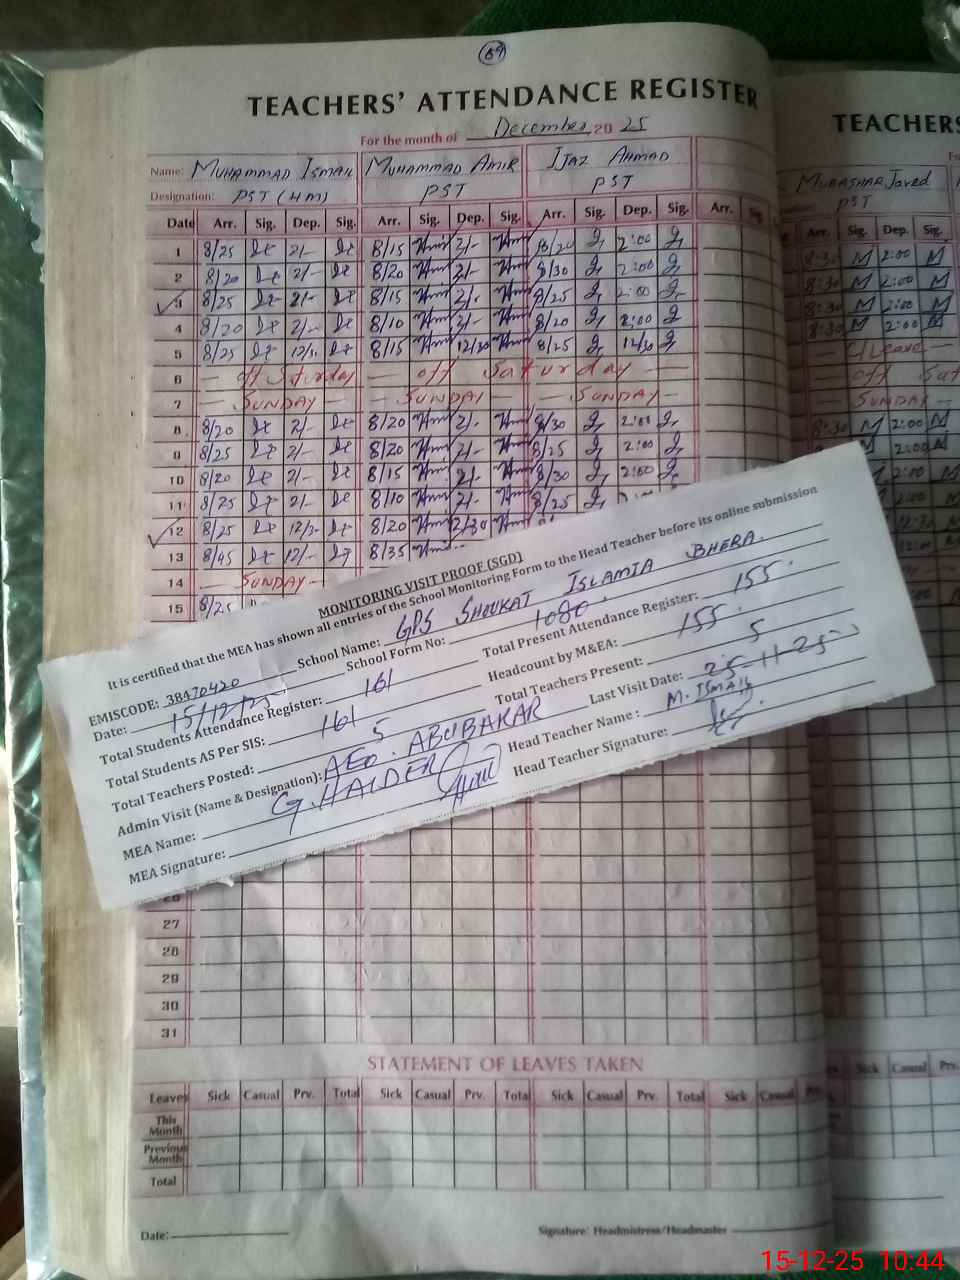 69
TEACHERS' ATTENDANCE REGISTER
For the month of December 2025
Name: MUHAMMAD ISMAIL MUHAMMAD AMIR IJAZ AHMAD
Designation: PST (HM) PST PST
Date Arr. Sig. Dep. Sig. Arr. Sig. Dep. Sig. Arr. Sig. Dep. Sig. Arr. Sig.
1 8/25 2/- 8/15 2/- 8/20 2:00
2 8/20 2/- 8/20 2/- 8/30 2:00
3 8/25 2/- 8/15 2/- 8/25 2:00
4 8/20 2/- 8/10 2/- 8/20 2:00
5 8/25 8/15 12/30 8/25 12/30
6 — off Saturday — off Saturday —
7 — SUNDAY — — SUNDAY — — SUNDAY —
8 8/20 2/- 8/20 2/- 8/30 2:00
9 8/25 2/- 8/20 2/- 8/25 2:00
10 8/20 2/- 8/15 2/- 8/30 2:00
11 8/25 2/- 8/10 2/- 8/25
12 8/25 8/20 12/30
13 8/45 12/- 8/35
14 — SUNDAY —
15 8/25
MONITORING VISIT PROOF (SGD)
It is certified that the MEA has shown all entries of the School Monitoring Form to the Head Teacher before its online submission
EMISCODE: 38470420 School Name: GPS SHOUKAT ISLAMIA BHERA.
Date: 15/12/25 School Form No: 1080.
Total Students Attendance Register: 161 Total Present Attendance Register: 155.
Total Students AS Per SIS: 161 Headcount by M&EA: 155.
Total Teachers Posted: 5 Total Teachers Present: 5
Admin Visit (Name & Designation): AEO. ABUBAKAR Last Visit Date: 25-11-25
MEA Name: G. HAIDER Head Teacher Name: M. ISMAIL
MEA Signature: Head Teacher Signature:
27
28
29
30
31
STATEMENT OF LEAVES TAKEN
Leaves Sick Casual Prv. Total Sick Casual Prv. Total Sick Casual Prv. Total Sick Casual Prv.
This Month
Previous Month
Total
Date: Signature: Headmistress/Headmaster
TEACHERS
MUBASHAR Javed
PST
Arr. Sig. Dep. Sig.
8:30 M 2:00 M
8:30 M 2:00 M
8:30 M 2:00 M
8:30 M 2:00 M
— C/Leave —
— off Sat
— SUNDAY —
8:30 M 2:00 M
M 2:00 M
2:00 M
2:00 M
Sick Casual Prv.
15-12-25 10:44